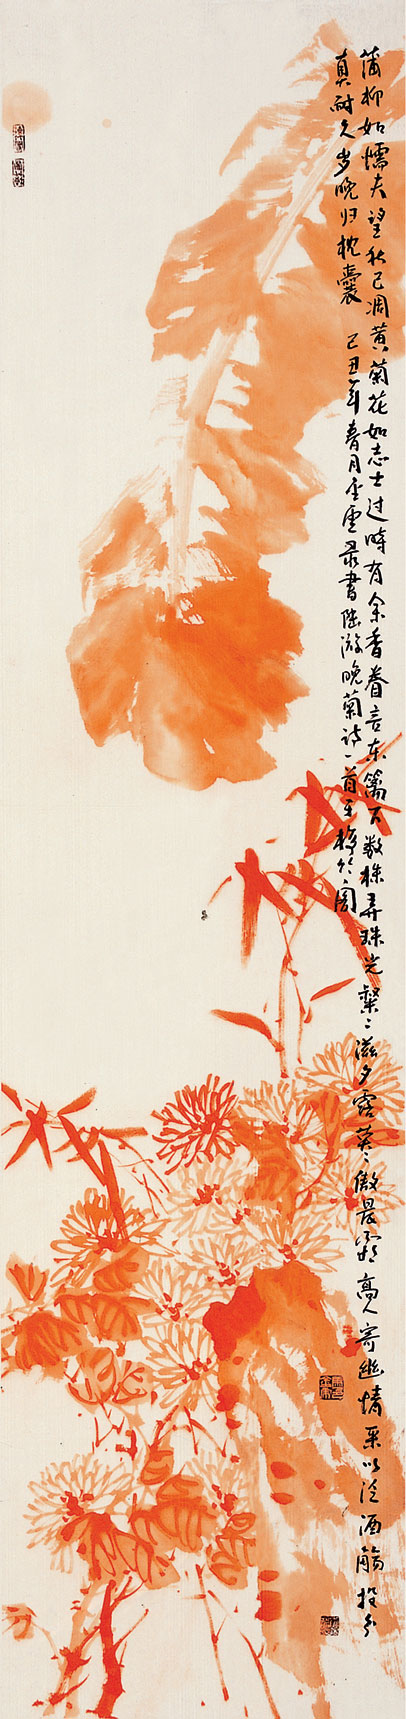 蒲柳如懦夫望秋已凋黄菊花如志士过时有余香眷言东篱下数株弄珠光粲〻滋夕露英〻傲晨霜高人寄幽情采以泛酒觞投分
真耐久岁晚归枕囊 己丑年春月 书陆游晚菊诗一首于